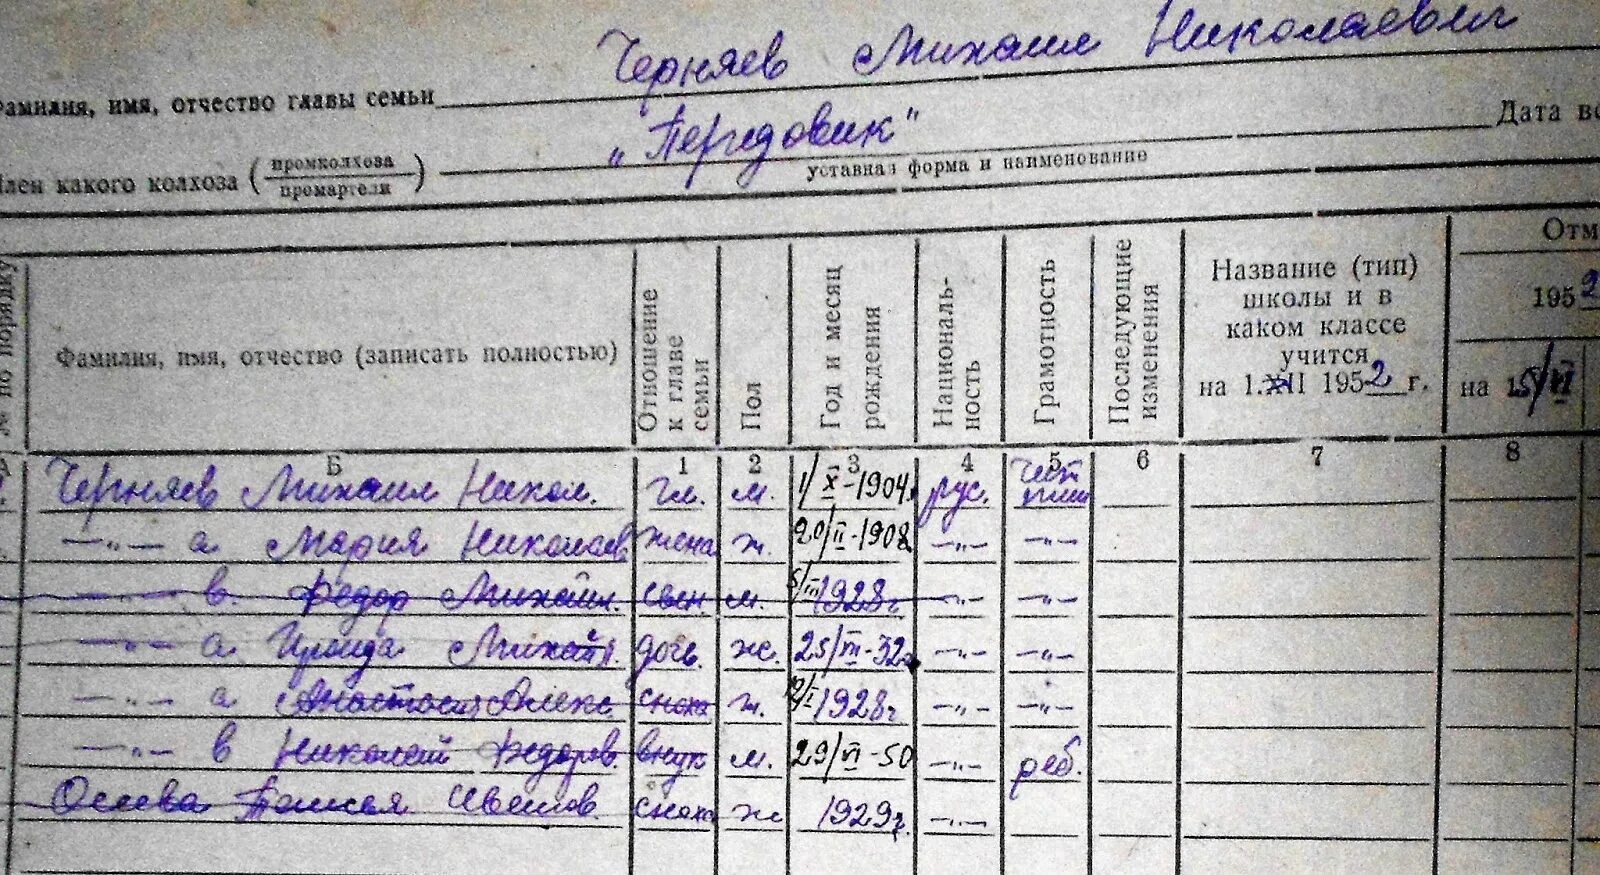 Черняев Михаил Николаевич
Фамилия, имя, отчество главы семьи
„Передовик"
Дата во
Член какого колхоза ( промколхоза / промартели )
уставная форма и наименование
№ по порядку
Фамилия, имя, отчество (записать полностью)
Отношение к главе семьи
Пол
Год и месяц рождения
Национальность
Грамотность
Последующие изменения
Название (тип) школы и в каком классе учится на 1.XII 1952 г.
Отм
1952
на 15/VI
А Б 1 2 3 4 5 6 7 8
Черняев Михаил Никол. гл. м. 1/X-1904г рус.
—„— а Мария Николаев жена ж. 20/II-1908 —„— —„—
—„— в. Федор Михайл. м. 5/III 1928г —„— —„—
—„— а Ираида Михайл. дочь. ж. 25/III-32г —„— —„—
—„— а Анастасия Алекс. сноха ж. 1928г —„— —„—
—„— в Николай Федоров. внук м. 29/VI-50 —„— реб.
сноха ж 1929г. —„—